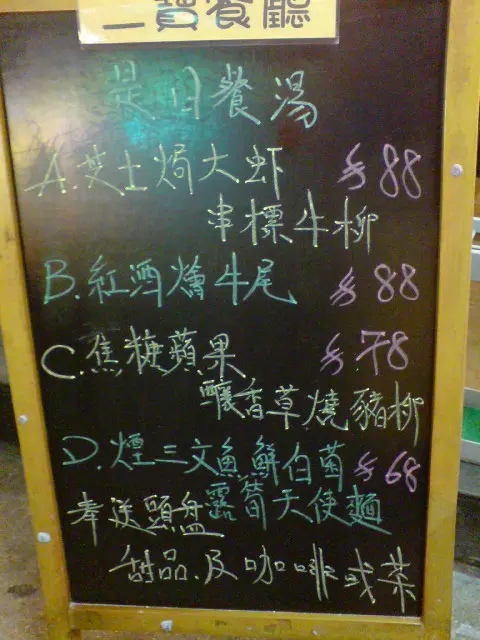 二寶餐廳
是日餐湯
A.芝士焗大虾 $88
串標牛柳
B.紅酒燴牛尾 $88
C.焦糖蘋果 $78
釀香草燒豬柳
D.煙三文魚鮮白菌 $68
露荀天使麵
奉送頭盤
甜品.及咖啡或茶